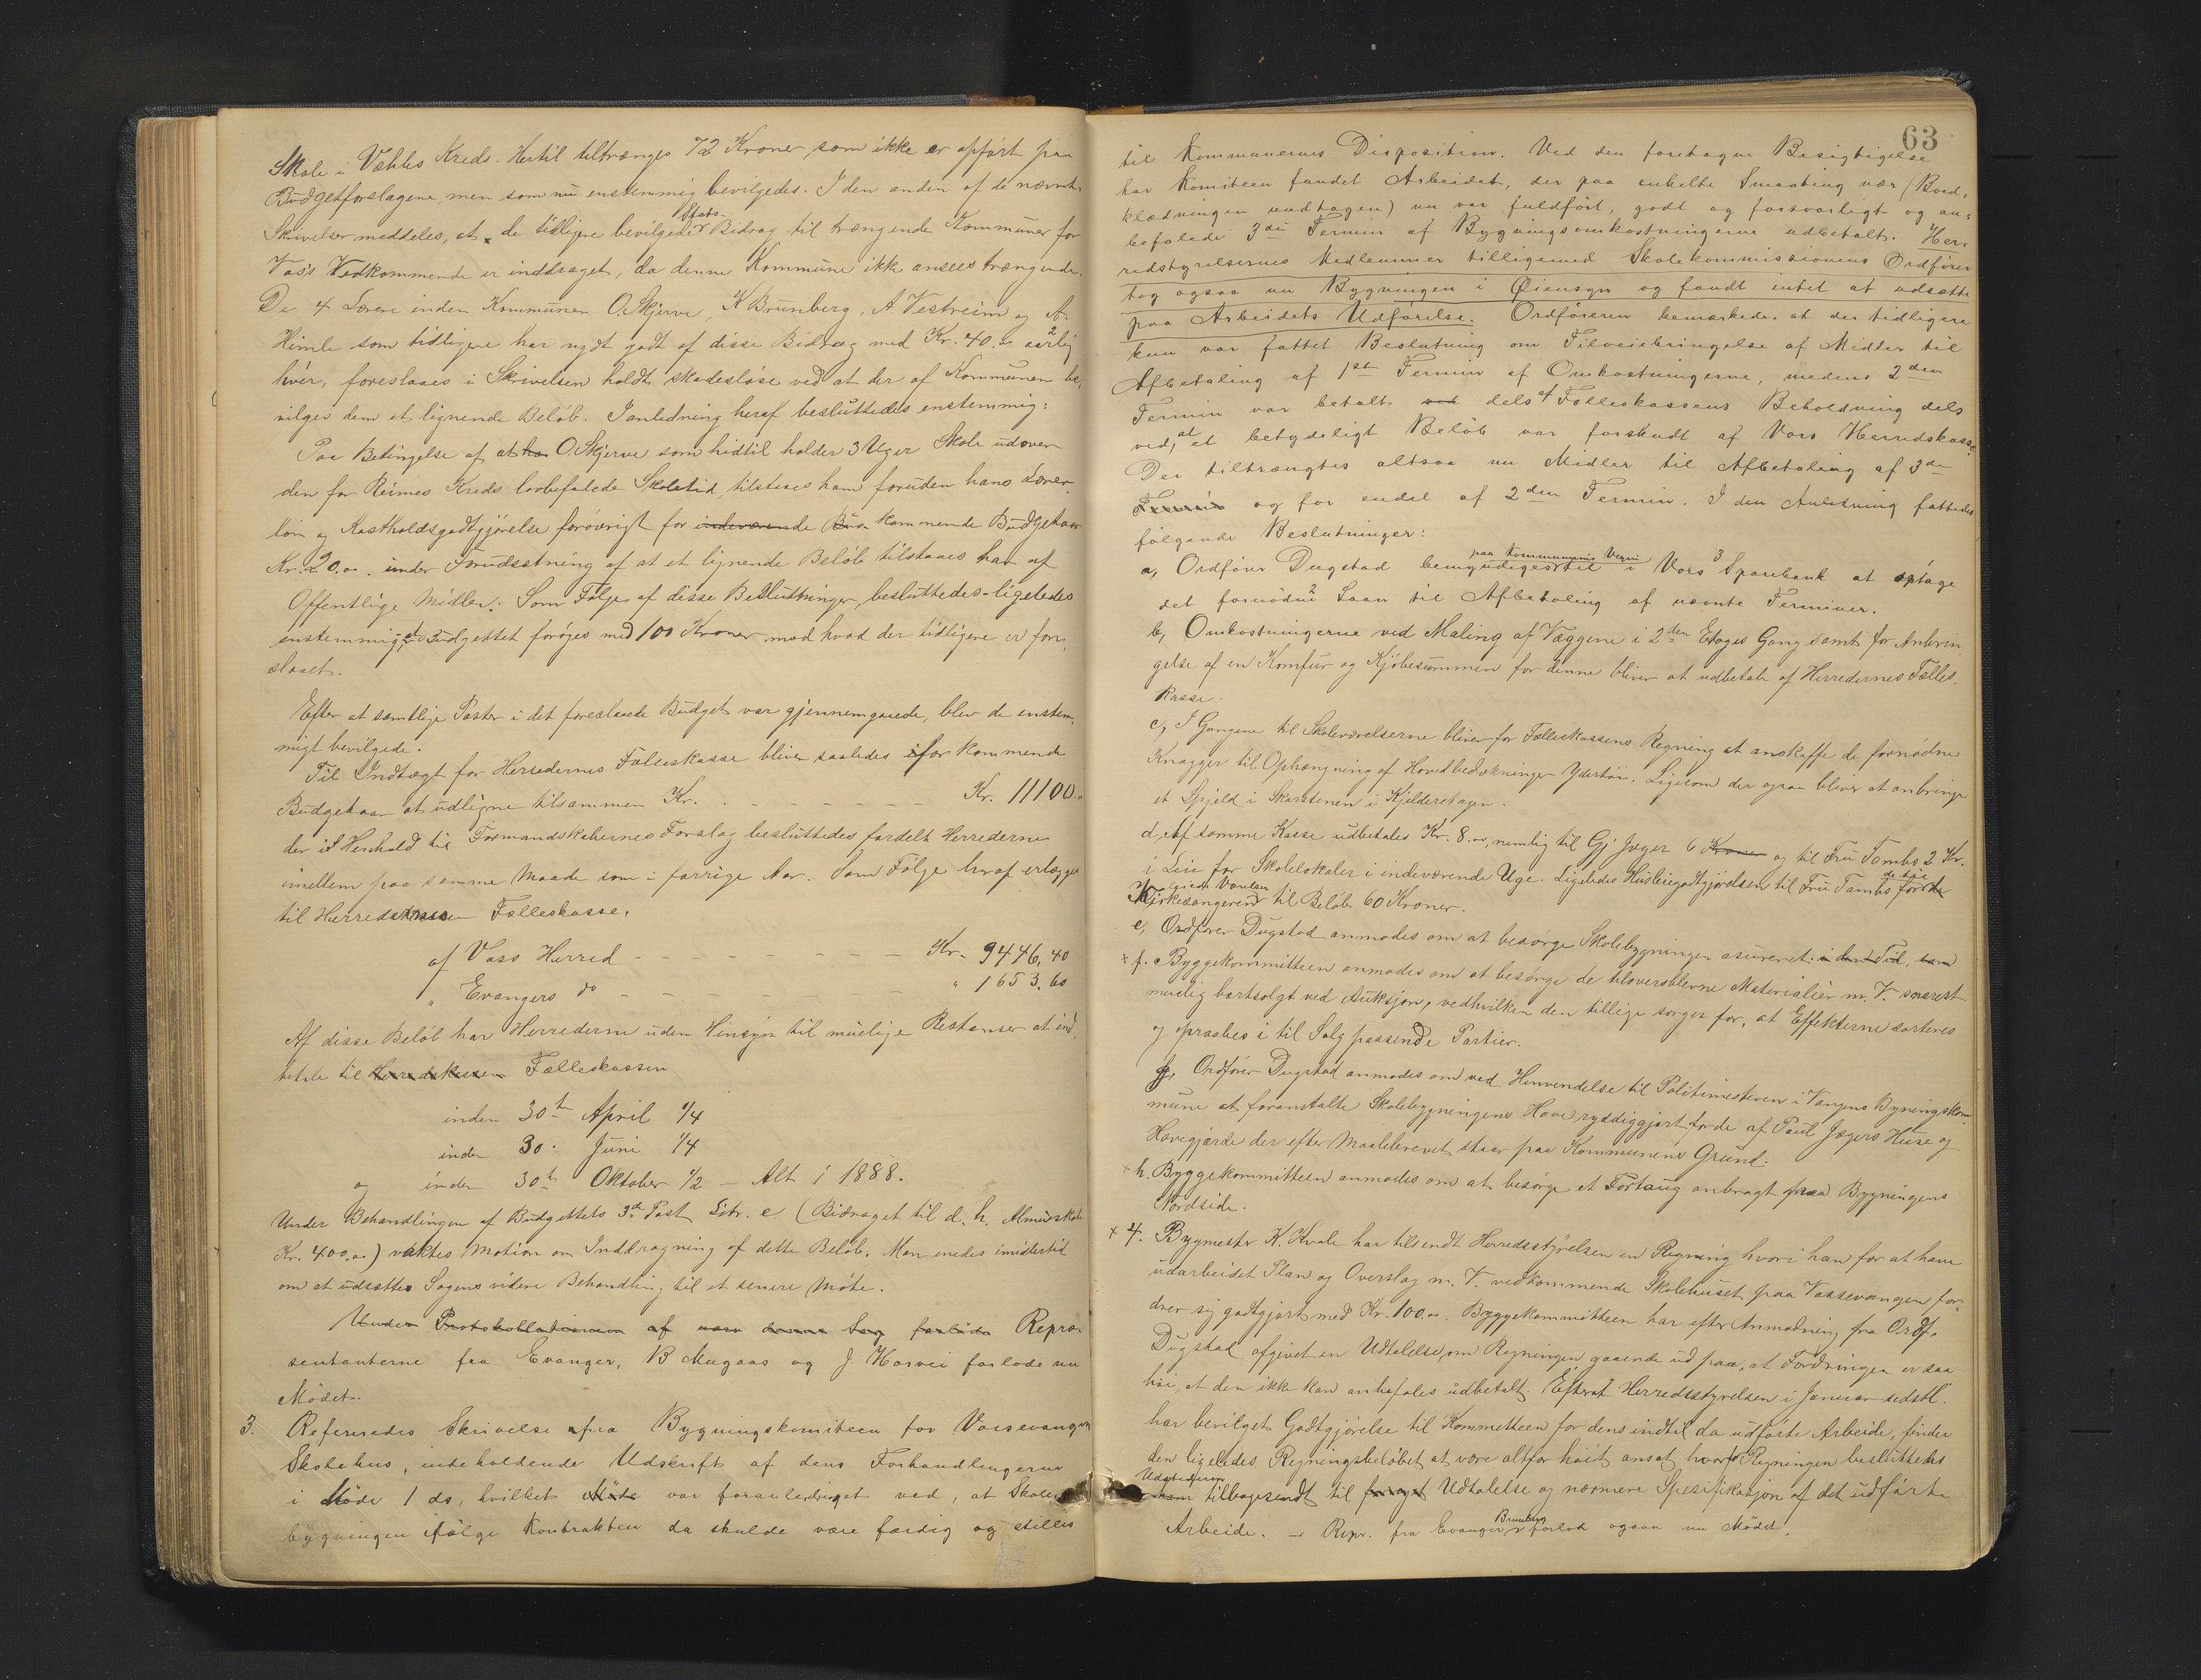 Skole i Væhles Kreds. Hertil tiltrænges 72 Kroner, som ikke er opført paa
Budgetforslagene, men som nu enstemmig bevilgedes. I den anden af de nævnte
Skrivelser meddeles, at de tidligere bevilgede Stats- Bidrag til trængende Kommuner for
Voss's Vedkommende er inddraget, da denne Kommune ikke ansees trængende.
De 4 Lærere inden Kommunen O. Skjerve, K Brunborg, A. Vestreim og A.
Himle som tidligere har nydt godt af disse Bidrag med Kr. 40.00 aarlig
hver, foreslaaes i Skrivelsen holdt skadesløse ved at der af Kommunen be-
vilges dem et lignende Beløb. I anledning heraf besluttedes enstemmig:
Paa Betingelse af at har O. Skjerve som hidtil holder 3 Uger Skole udover
den for Reimes Kreds lovbefalede Skoletid, tilstaaes ham foruden hans Lærer-
løn og Kostholdsgodtgjørelse forøvrigt for indeværende kommende Budgetaar
Kr. 20.00 under Forudsætning af at et lignende Beløb tilstaaes ham af
Offentlige Midler. Som Følge af disse Beslutninger, besluttedes ligeledes
enstemmig, at Budgettet forøges med 100 Kroner mod hvad der tidligere er fore-
slaaet.
Efter at samtlige Poster i det foreslaaede Budget var gjennemgaaede, blev de enstem-
migt bevilgede.
Til Indtægt for Herredernes Fælleskasse bliver saaledes for kommende
Budgetaar at udligne tilsammen Kr. - - - - - - - Kr. 11100.00
der i Henhold til Formandskabernes Forslag besluttedes fordelt Herrederne
imellem paa samme Maade som i forrige Aar. Som Følge heraf erlægges
til Herredernes Fælleskasse,
af Voss Herred - - - - - - - - Kr. 9446,40
" Evangers do - - - - - - - " 1653.60
Af disse Beløb har Herrederne uden Hinsyn til mulige Restanser at ind-
betale til Herredskassen Fælleskassen
inden 30te April 1/4
inden 30. Juni 1/4
og inden 30te Oktober 1/2 - Alt i 1888.
Under Behandlingen af Budgettets 3die Post Litr. e (Bidraget til d. h. Almueskole
Kr. 400.00) vaktes Motion om Inddragning af dette Beløb. Man enedes imidlertid
om at udsætte Sagens videre Behandling til et senere Møte.
Under Protokollationen af denne Sag forlode Repræ-
sentanterne fra Evanger, B Mugaas og J. Horvei forlode nu
Mødet.
3. Refereredes Skrivelse fra Bygningskomiteen for Vossevangens
Skolehus, indeholdende Udskrift af dens Forhandlingerne
i Møde 1 ds, hvilket Møde var foranlediget ved, at Skole-
bygningen ifølge Kontrakten da skulde være færdig og stilles
63
til Kommunernes Disposition. Ved den foretagne Besigtigelse
har Komiteen fundet Arbeidet, der paa enkelte Smaating nær (Bord-
klædningen undtagen) nu var fuldført, godt og forsvarligt og an-
befalede 3die Termin af Bygningsomkostningerne udbetalt. Her-
redstyrelsernes Medlemmer tilligemed Skolekommissionens Ordfører
tog ogsaa nu Bygningen i Øiensyn og fandt intet at udsætte
paa Arbeidets Udførelse. Ordføreren bemærkede at der tidligere
kun var fattet Beslutning om Tilveiebringelse af Midler til
Afbetaling af 1ste Termin af Omkostningerne, medens 2den
Termin var betalt ved dels af Fælleskassens Beholdning dels
ved, at et betydeligt Beløb var forskudt af Voss Herredskasse.
Der tiltrængtes altsaa nu Midler til Afbetaling af 3die
Termin og for endel af 2den Termin. I den Anledning fattedes
følgende Beslutninger:
a, Ordfører Dugstad bemyndiges til paa Kommunernes Vegne i Voss Sparebank at optage
det fornødne Laan til Afbetaling af nævnte Terminer.
b, Omkostningerne ved Maling af Væggene i 2den Etages Gang samt for Anbrin-
gelse af en Komfur og Kjøbesummen for denne bliver at udbetale af Herredernes Fælles-
kasse.
c, I Gangene til Skoleværelserne bliver for Fælleskassens Regning at anskaffe de fornødne
Knagger til Ophængning af Hovedbedækninger Ydertøi. Ligesom der ogsaa bliver at anbringe
et Spjeld i Skorstenen i Kjelderetagen.
d, Af samme Kasse udbetales Kr. 8.00, nemlig til Gj Jæger 6 Kroner og til Fru Tambs 2 Kr.
i Leie for Skolelokaler i indeværende Uge. Ligeledes Husleiegodtgjørelsen til Fru Tambs for
Kirkesangeren til Beløb 60 Kroner.
e, Ordfører Dugstad anmodes om at besørge Skolebygningen asureret i den Tid,
x f. Byggekommitteen anmodes om at besørge de tiloversblevne Materialier m. V. snarest
muelig bortsolgt ved Auksjon, vedhvilken den tillige sørger for, at Effekterne sorteres
og opraabes i til Salg passende Partier.
g, Ordfører Dugstad anmodes om ved Henvendelse til Politimesteren i Vangens Bygningskom-
mune at foranstalte Skolebygningens Have ryddiggjort for de af Paul Jægers Huse og
Havegjærde der efter Maalebrevet staar paa Kommunens Grund.
x h. Byggekommitteen anmodes om at besørge et Fortaug anbragt paa Bygningens
Nordside.
x 4. Bygmester K. Kvale har tilsendt Herredsstyrelsen en Regning hvori han for at have
udarbeidet Plan og Overslag m. V. vedkommende Skolehuset paa Vossevangen for-
drer sig godtgjort med Kr. 100.00. Byggekommitteen har efter Anmodning fra Ordf.
Dugstad afgivet en Udtalelse, om Regningen gaaende ud paa, at Fordringen er saa
høi, at den ikke kan anbefales udbetalt. Efterat Herredsstyrelsen i Januar sidstl.
har bevilget Godtgjørelse til Kommetteen for dens indtil da udførte Arbeide, finder
den ligeledes Regningsbeløbet at være altfor høit ansat, hvorfor Regningen besluttedes
Udstederen tilbagesendt til Udtalelse og nærmere Spesifikasjon af det udførte
Arbeide. - Repr. fra Evanger Brunborg forlod ogsaa nu Mødet.